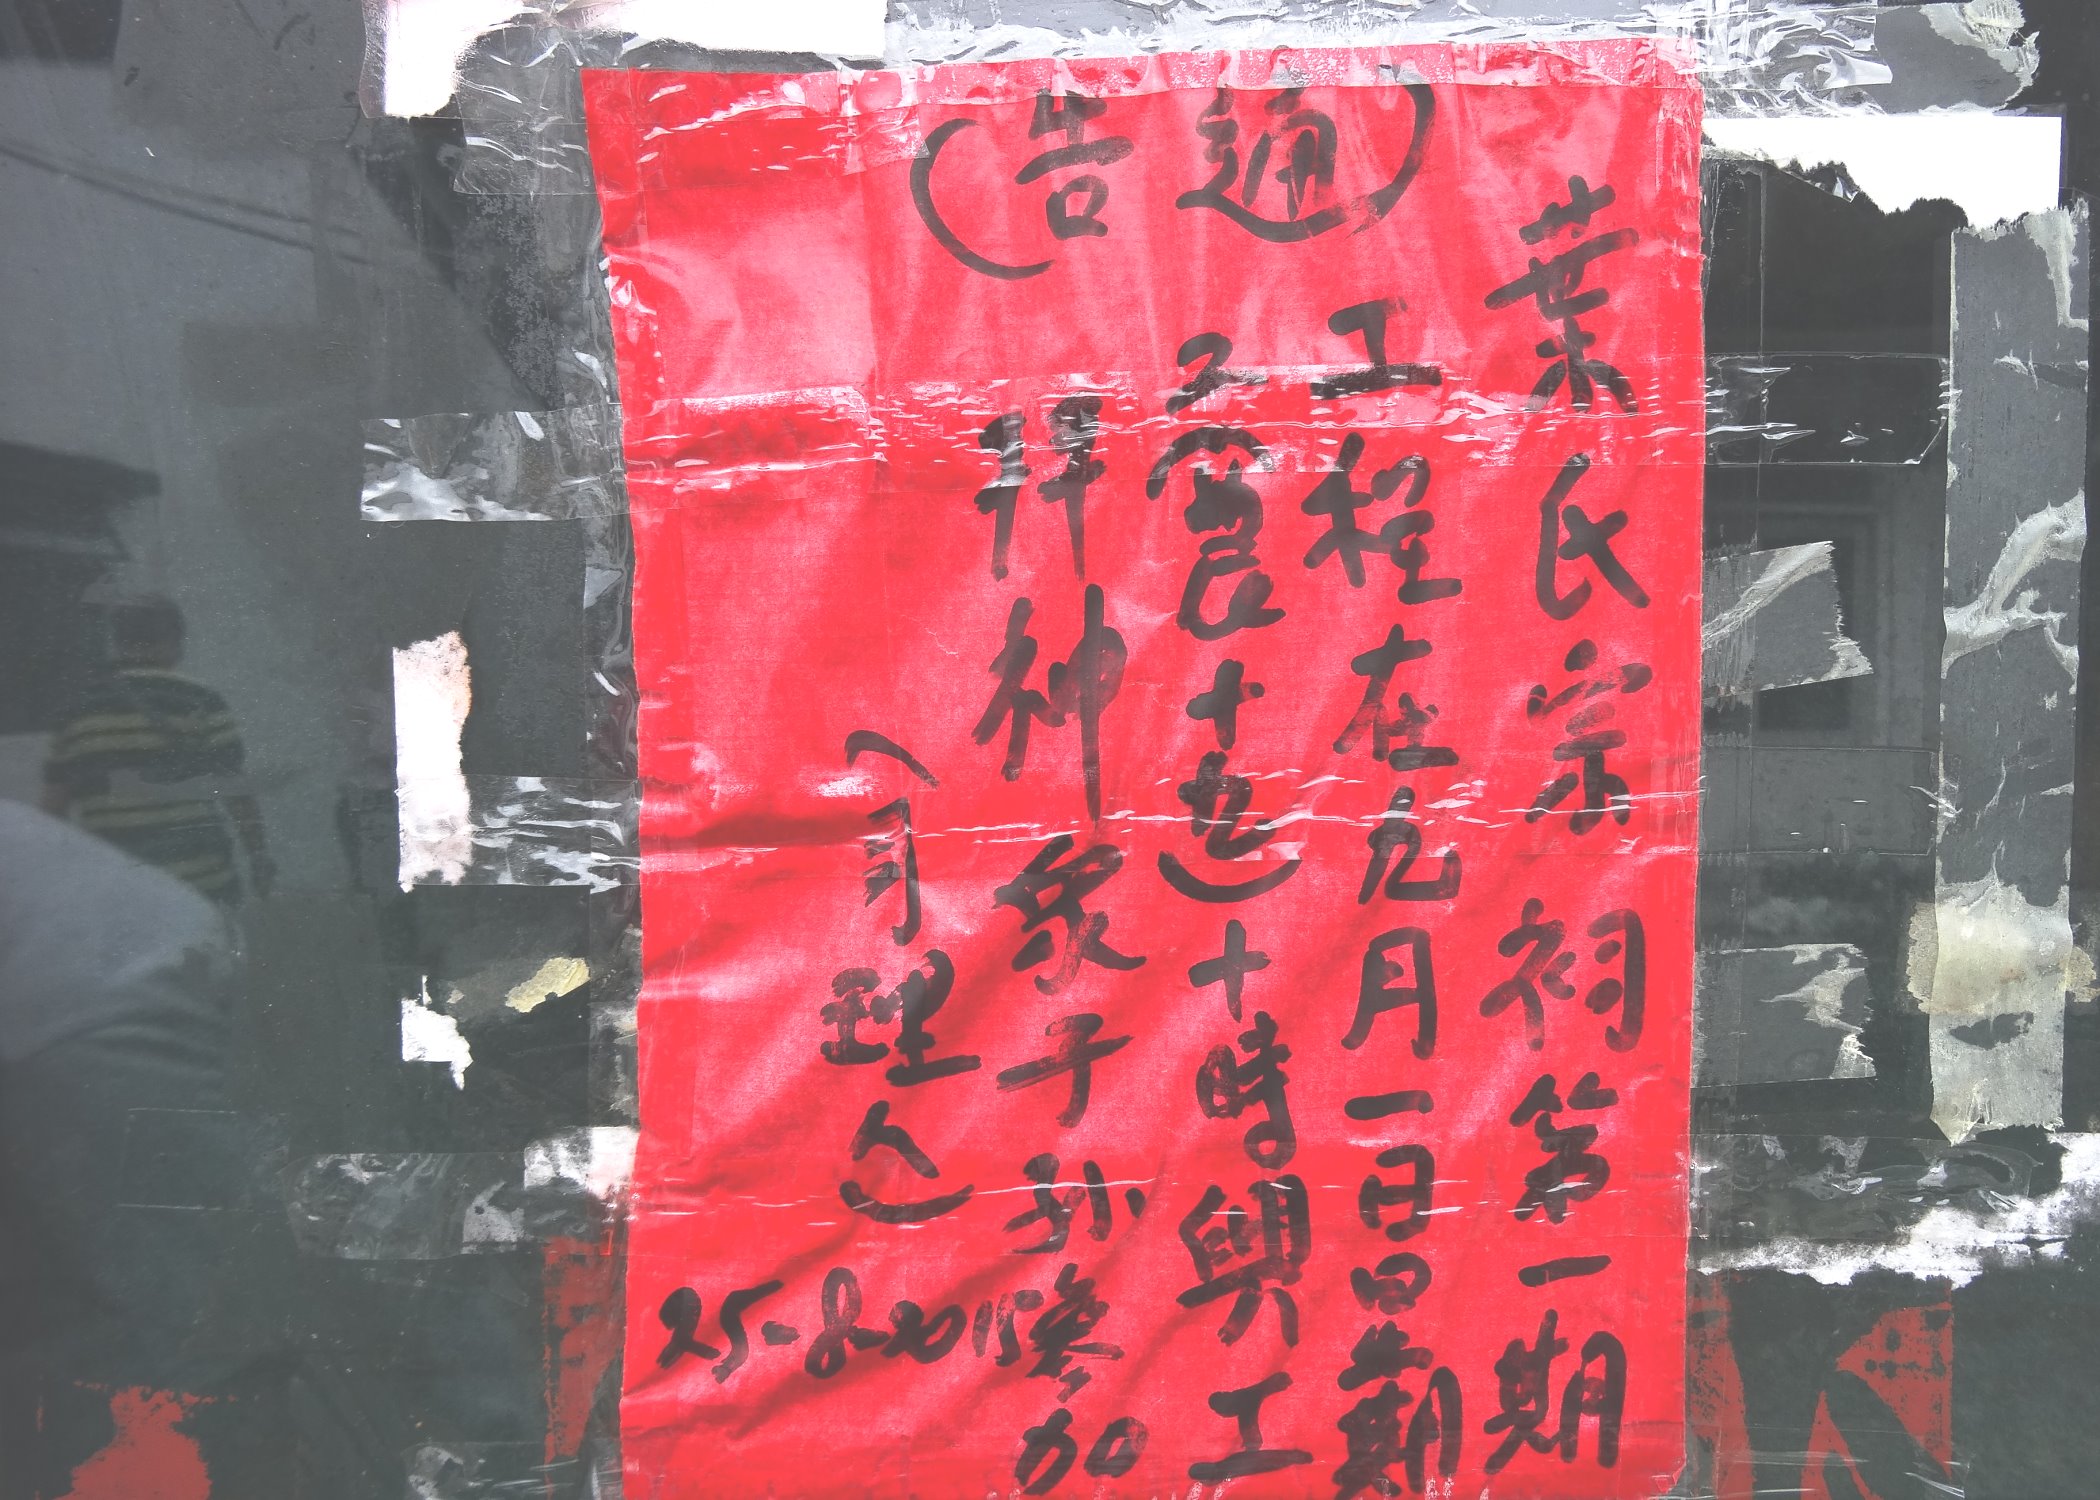 (通告)
葉氏宗祠第一期
工程在九月一日星期
二(農十九)十時興工
拜神衆子孫參加
(司理人)
25-8-2015